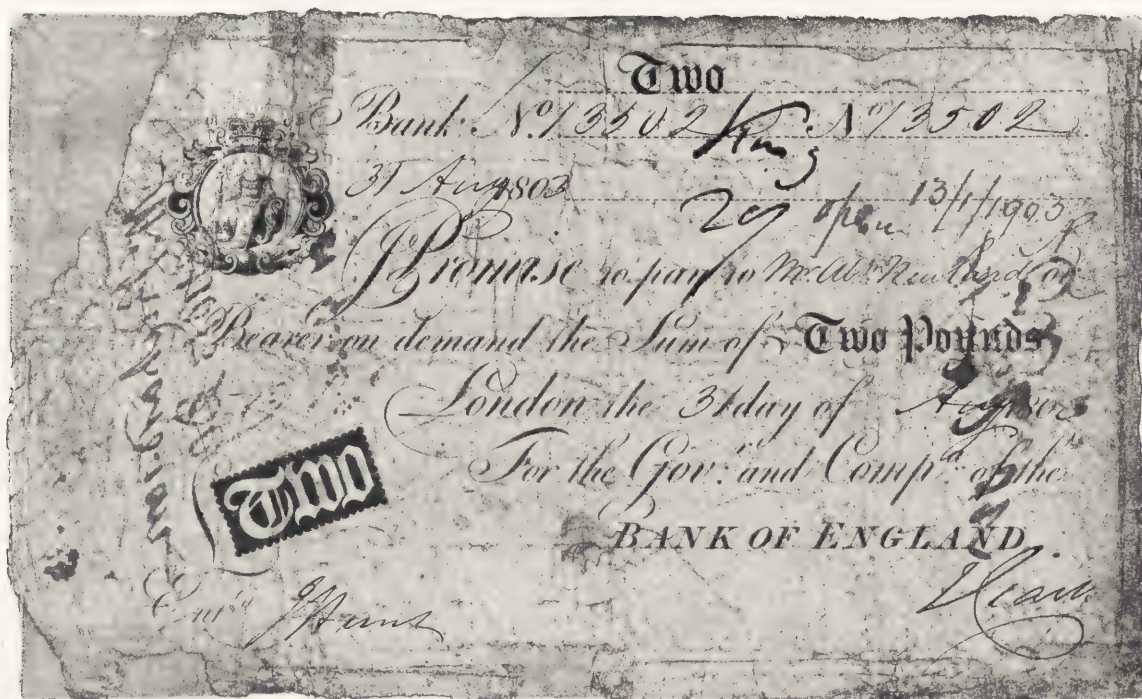 Two
Bank Nº 13502 King Nº 13502
31 Aug 1803
29 open 13/1/1903
I Promise to pay to Mr. Abm. Newland or
Bearer on demand the Sum of Two Pounds
London the 31 day of Aug 1803
For the Govr. and Compa. of the
BANK OF ENGLAND.
Two
Entd. J Hunt